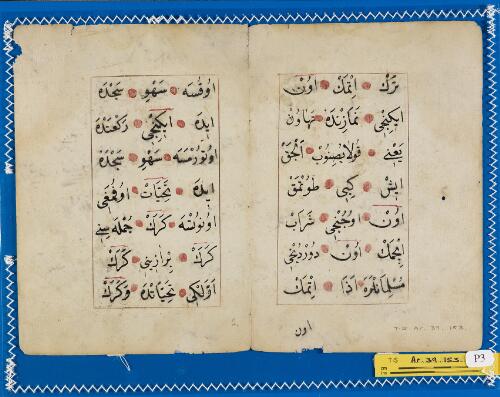 ترك اتمك اون
ايكنجى نمازنده تهاون
يعنى قولايصيوب آلچق
ايش كبى طوتمق
اون اوچنجى شراب
ايچمك اون دوردنجى
مسلمانلره اذا اتمك
اون
اوقسه سهو سجده
ايده ايكنجى ركعتده
اوتورمسه سهو سجده
ايده تحيات اوقمغى
اونوتسه كرك جمله سنى
كرك برازينى كرك
اوّلكى تحياتده و كرك
T-S Ar. 39. 153.
TS Ar.39.153. P3